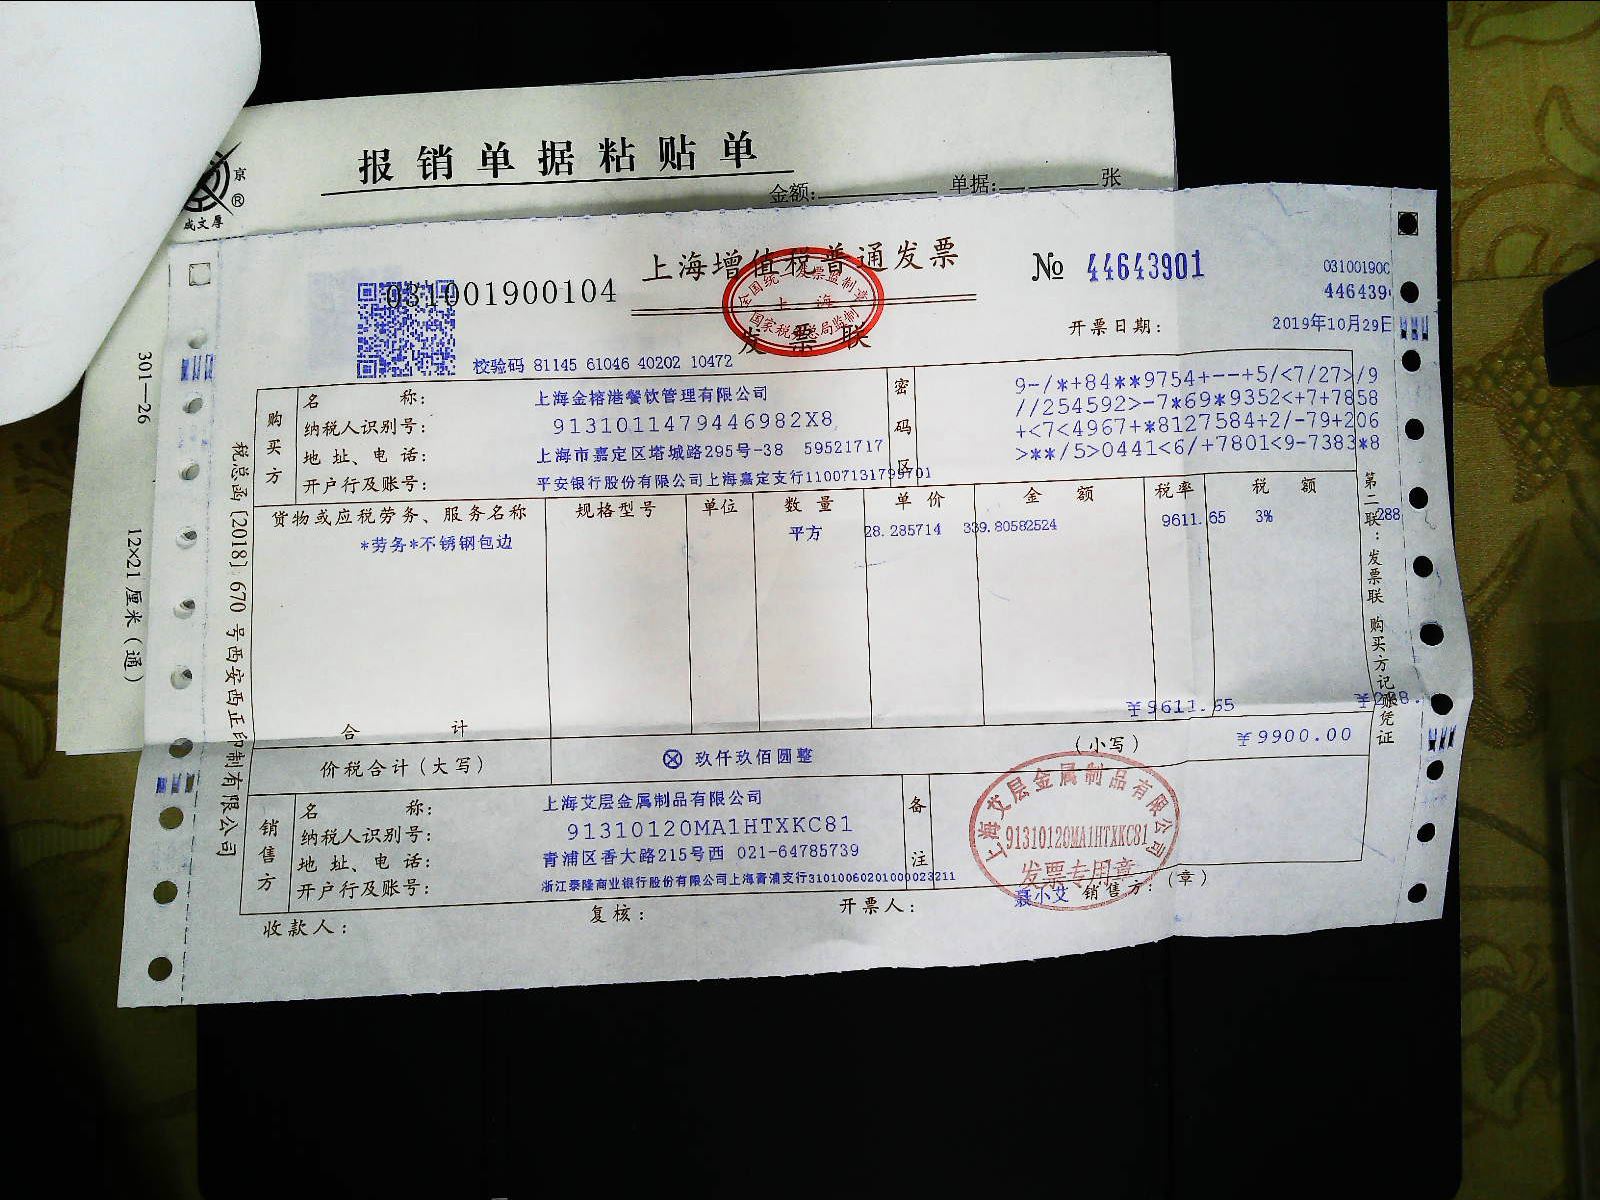 报销单据粘贴单
金额: 单据: 张
京
®
成文厚
301—26
12×21厘米(通)
上海增值税普通发票
031001900104
№ 44643901
03100190
446439
全国统一发票监制章
上海
国家税务总局监制
发票联
开票日期: 2019年10月29日
校验码 81145 61046 40202 10472
购买方
名称: 上海金榕港餐饮管理有限公司
纳税人识别号: 9131011479446982X8
地址、电话: 上海市嘉定区塔城路295号-38 59521717
开户行及账号: 平安银行股份有限公司上海嘉定支行11007131799701
密码区
9-/*+84**9754+--+5/<7/27>/9
//254592>-7*69*9352<+7+7858
+<7<4967+*8127584+2/-79+206
>**/5>0441<6/+7801<9-7383*8
货物或应税劳务、服务名称 规格型号 单位 数量 单价 金额 税率 税额
*劳务*不锈钢包边 平方 28.285714 339.80582524 9611.65 3% 288
合计 ¥9611.65 ¥288.
价税合计(大写) ⊗ 玖仟玖佰圆整 (小写) ¥9900.00
销售方
名称: 上海艾层金属制品有限公司
纳税人识别号: 91310120MA1HTXKC81
地址、电话: 青浦区香大路215号西 021-64785739
开户行及账号: 浙江泰隆商业银行股份有限公司上海青浦支行31010060201000023211
备注
上海艾层金属制品有限公司
91310120MA1HTXKC81
发票专用章
收款人: 复核: 开票人: 聂小艾 销售方:(章)
税总函[2018]670号西安西正印制有限公司
第二联:发票联 购买方记账凭证